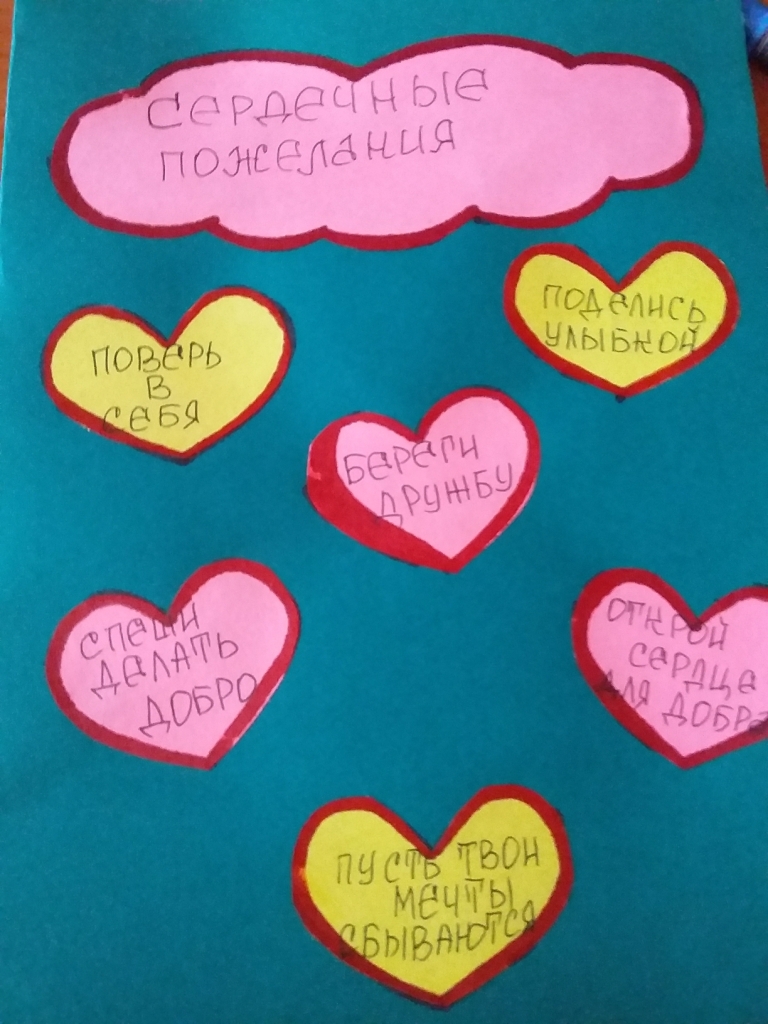 СЕРДЕЧНЫЕ
ПОЖЕЛАНИЯ
ПОДЕЛИСЬ
УЛЫБКОЙ
ПОВЕРЬ
В
СЕБЯ
БЕРЕГИ
ДРУЖБУ
СПЕШИ
ДЕЛАТЬ
ДОБРО
ОТКРОЙ
СЕРДЦЕ
ДЛЯ ДОБРА
ПУСТЬ ТВОИ
МЕЧТЫ
СБЫВАЮТСЯ